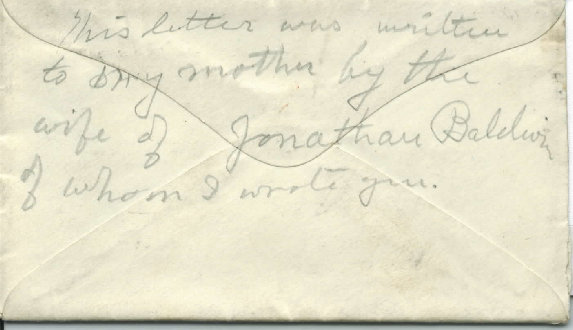 This letter was written
to my mother by the
wife of Jonathan Baldwin
of whom I wrote you.